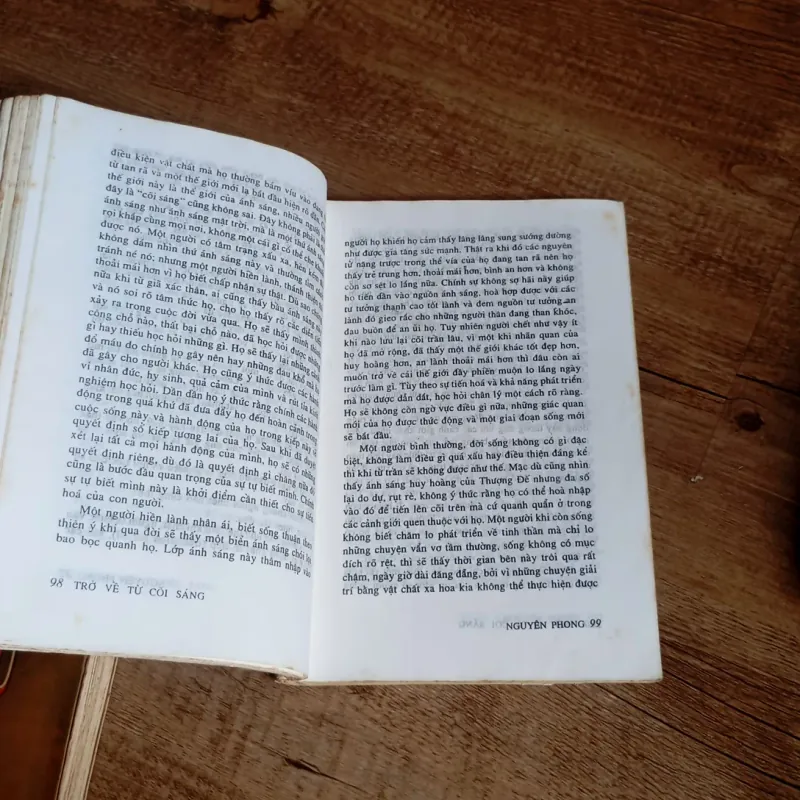 điều kiện vật chất mà họ thường bám víu vào đang
từ tan rã và một thế giới mới lạ bắt đầu hiện rõ dần.
thế giới này là thế giới của ánh sáng, nhiều người
đây là “cõi sáng” cũng không sai. Đây không phải là
ánh sáng như ánh sáng mặt trời, mà là một thứ ánh
rọi khắp cùng mọi nơi, không một cái gì có thể che
được nó. Một người có tâm trạng xấu xa, hèn kém
không dám nhìn thứ ánh sáng này và thường tìm
tránh né nó; nhưng một người hiền lành, thánh thiện
thoải mái hơn vì họ biết chấp nhận sự thật. Dù sao
nữa khi từ giã xác thân, ai cũng thấy bầu ánh sáng
và nó soi rõ tâm thức họ, cho họ thấy rõ các diễn
xảy ra trong cuộc đời vừa qua. Họ sẽ thấy mình
công chỗ nào, thất bại chỗ nào, đã học hỏi được
gì hay thiếu học hỏi những gì. Họ sẽ thấy lại những
đổ máu do chính họ gây nên hay những đau khổ mà
đã gây cho người khác. Họ cũng ý thức được các
vi nhân đức, hy sinh, quả cảm của mình và rút tỉa
nghiệm học hỏi. Dần dần họ ý thức rằng chính các hành
động trong quá khứ đã đưa đẩy họ đến hoàn cảnh trong
cuộc sống này và hành động của họ trong kiếp này sẽ
quyết định số kiếp tương lai của họ. Sau khi đã duyệt
xét lại tất cả mọi hành động của mình, họ sẽ có những
quyết định riêng, dù đó là quyết định gì chăng nữa đó
cũng là bước đầu quan trọng của sự tự biết mình. Chính
sự tự biết mình này là khởi điểm cần thiết cho sự tiến
hoá của con người.
Một người hiền lành nhân ái, biết sống thuận theo
thiên ý khi qua đời sẽ thấy một biển ánh sáng chói lọi
bao bọc quanh họ. Lớp ánh sáng này thâm nhập vào
98 TRỞ VỀ TỪ CÕI SÁNG
người họ khiến họ cảm thấy lâng lâng sung sướng dường
như được gia tăng sức mạnh. Thật ra khi đó các nguyên
tử nặng trược trong thể vía của họ đang tan rã nên họ
thấy trẻ trung hơn, thoải mái hơn, bình an hơn và không
còn sợ sệt lo lắng nữa. Chính sự không sợ hãi này giúp
họ tiến dần vào nguồn ánh sáng, hoà hợp được với các
tư tưởng thanh cao tốt lành và đem nguồn tư tưởng an
lành đó gieo rắc cho những người thân đang than khóc,
đau buồn để an ủi họ. Tuy nhiên người chết như vậy ít
khi nào lưu lại cõi trần lâu, vì một khi nhãn quan của
họ đã mở rộng, đã thấy một thế giới khác tốt đẹp hơn,
huy hoàng hơn, an lành thoải mái hơn thì đâu còn ai
muốn trở về cái thế giới đầy phiền muộn lo lắng ngày
trước làm gì. Tùy theo sự tiến hoá và khả năng phát triển
mà họ được dẫn dắt, học hỏi chân lý một cách rõ ràng.
Họ sẽ không còn ngờ vực điều gì nữa, những giác quan
mới của họ được thức động và một giai đoạn sống mới
sẽ bắt đầu.
Một người bình thường, đời sống không có gì đặc
biệt, không làm điều gì quá xấu hay điều thiện đáng kể
thì khi từ trần sẽ không được như thế. Mặc dù cũng nhìn
thấy ánh sáng huy hoàng của Thượng Đế nhưng đa số
lại do dự, rụt rè, không ý thức rằng họ có thể hoà nhập
vào đó để tiến lên cõi trên mà cứ quanh quẩn ở trong
các cảnh giới quen thuộc với họ. Một người khi còn sống
không biết chăm lo phát triển về tinh thần mà chỉ lo
những chuyện vẩn vơ tầm thường, sống không có mục
đích rõ rệt, thì sẽ thấy thời gian bên này trôi qua rất
chậm, ngày giờ dài đăng đẳng, bởi vì những chuyện giải
trí bằng vật chất xa hoa kia không thể thực hiện được
NGUYÊN PHONG 99